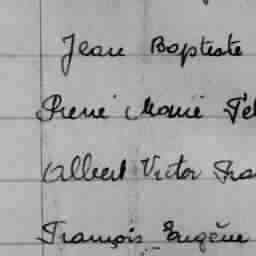 Jean Baptiste
Pierre Marie Fél
Albert Victor Fra
François Eugène